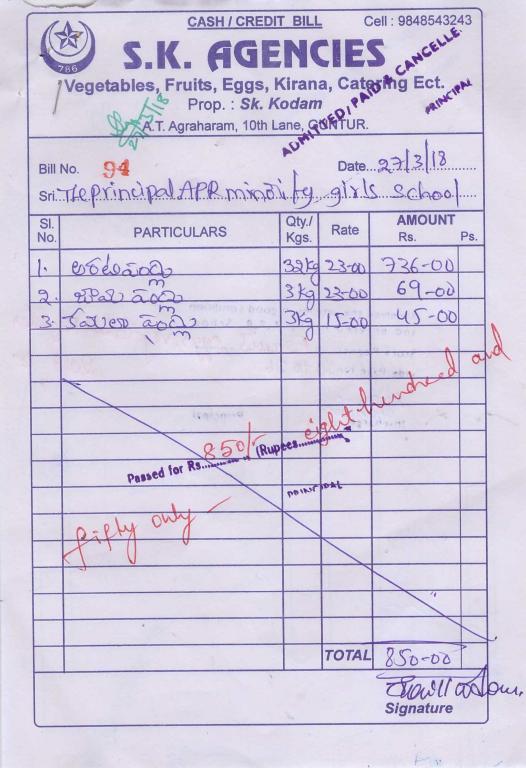 CASH / CREDIT BILL
Cell : 9848543243
786
S.K. AGENCIES
Vegetables, Fruits, Eggs, Kirana, Catering Ect.
Prop. : Sk. Kodam
A.T. Agraharam, 10th Lane, GUNTUR.
ADMITTED / PAID & CANCELLED
PRINCIPAL
27/3/18
Bill No. 94
Date...27/3/18
Sri. The principal APR minority girls school
Sl. No. PARTICULARS Qty./ Kgs. Rate AMOUNT Rs. Ps.
1. అరటిపండ్లు 32kg 23-00 736-00
2. జామ పండ్లు 3kg 23-00 69-00
3. కమలా పండ్లు 3kg 15-00 45-00
Passed for Rs. 850/- (Rupees eight hundred and
PRINCIPAL
fifty only -
TOTAL 850-00
Signature